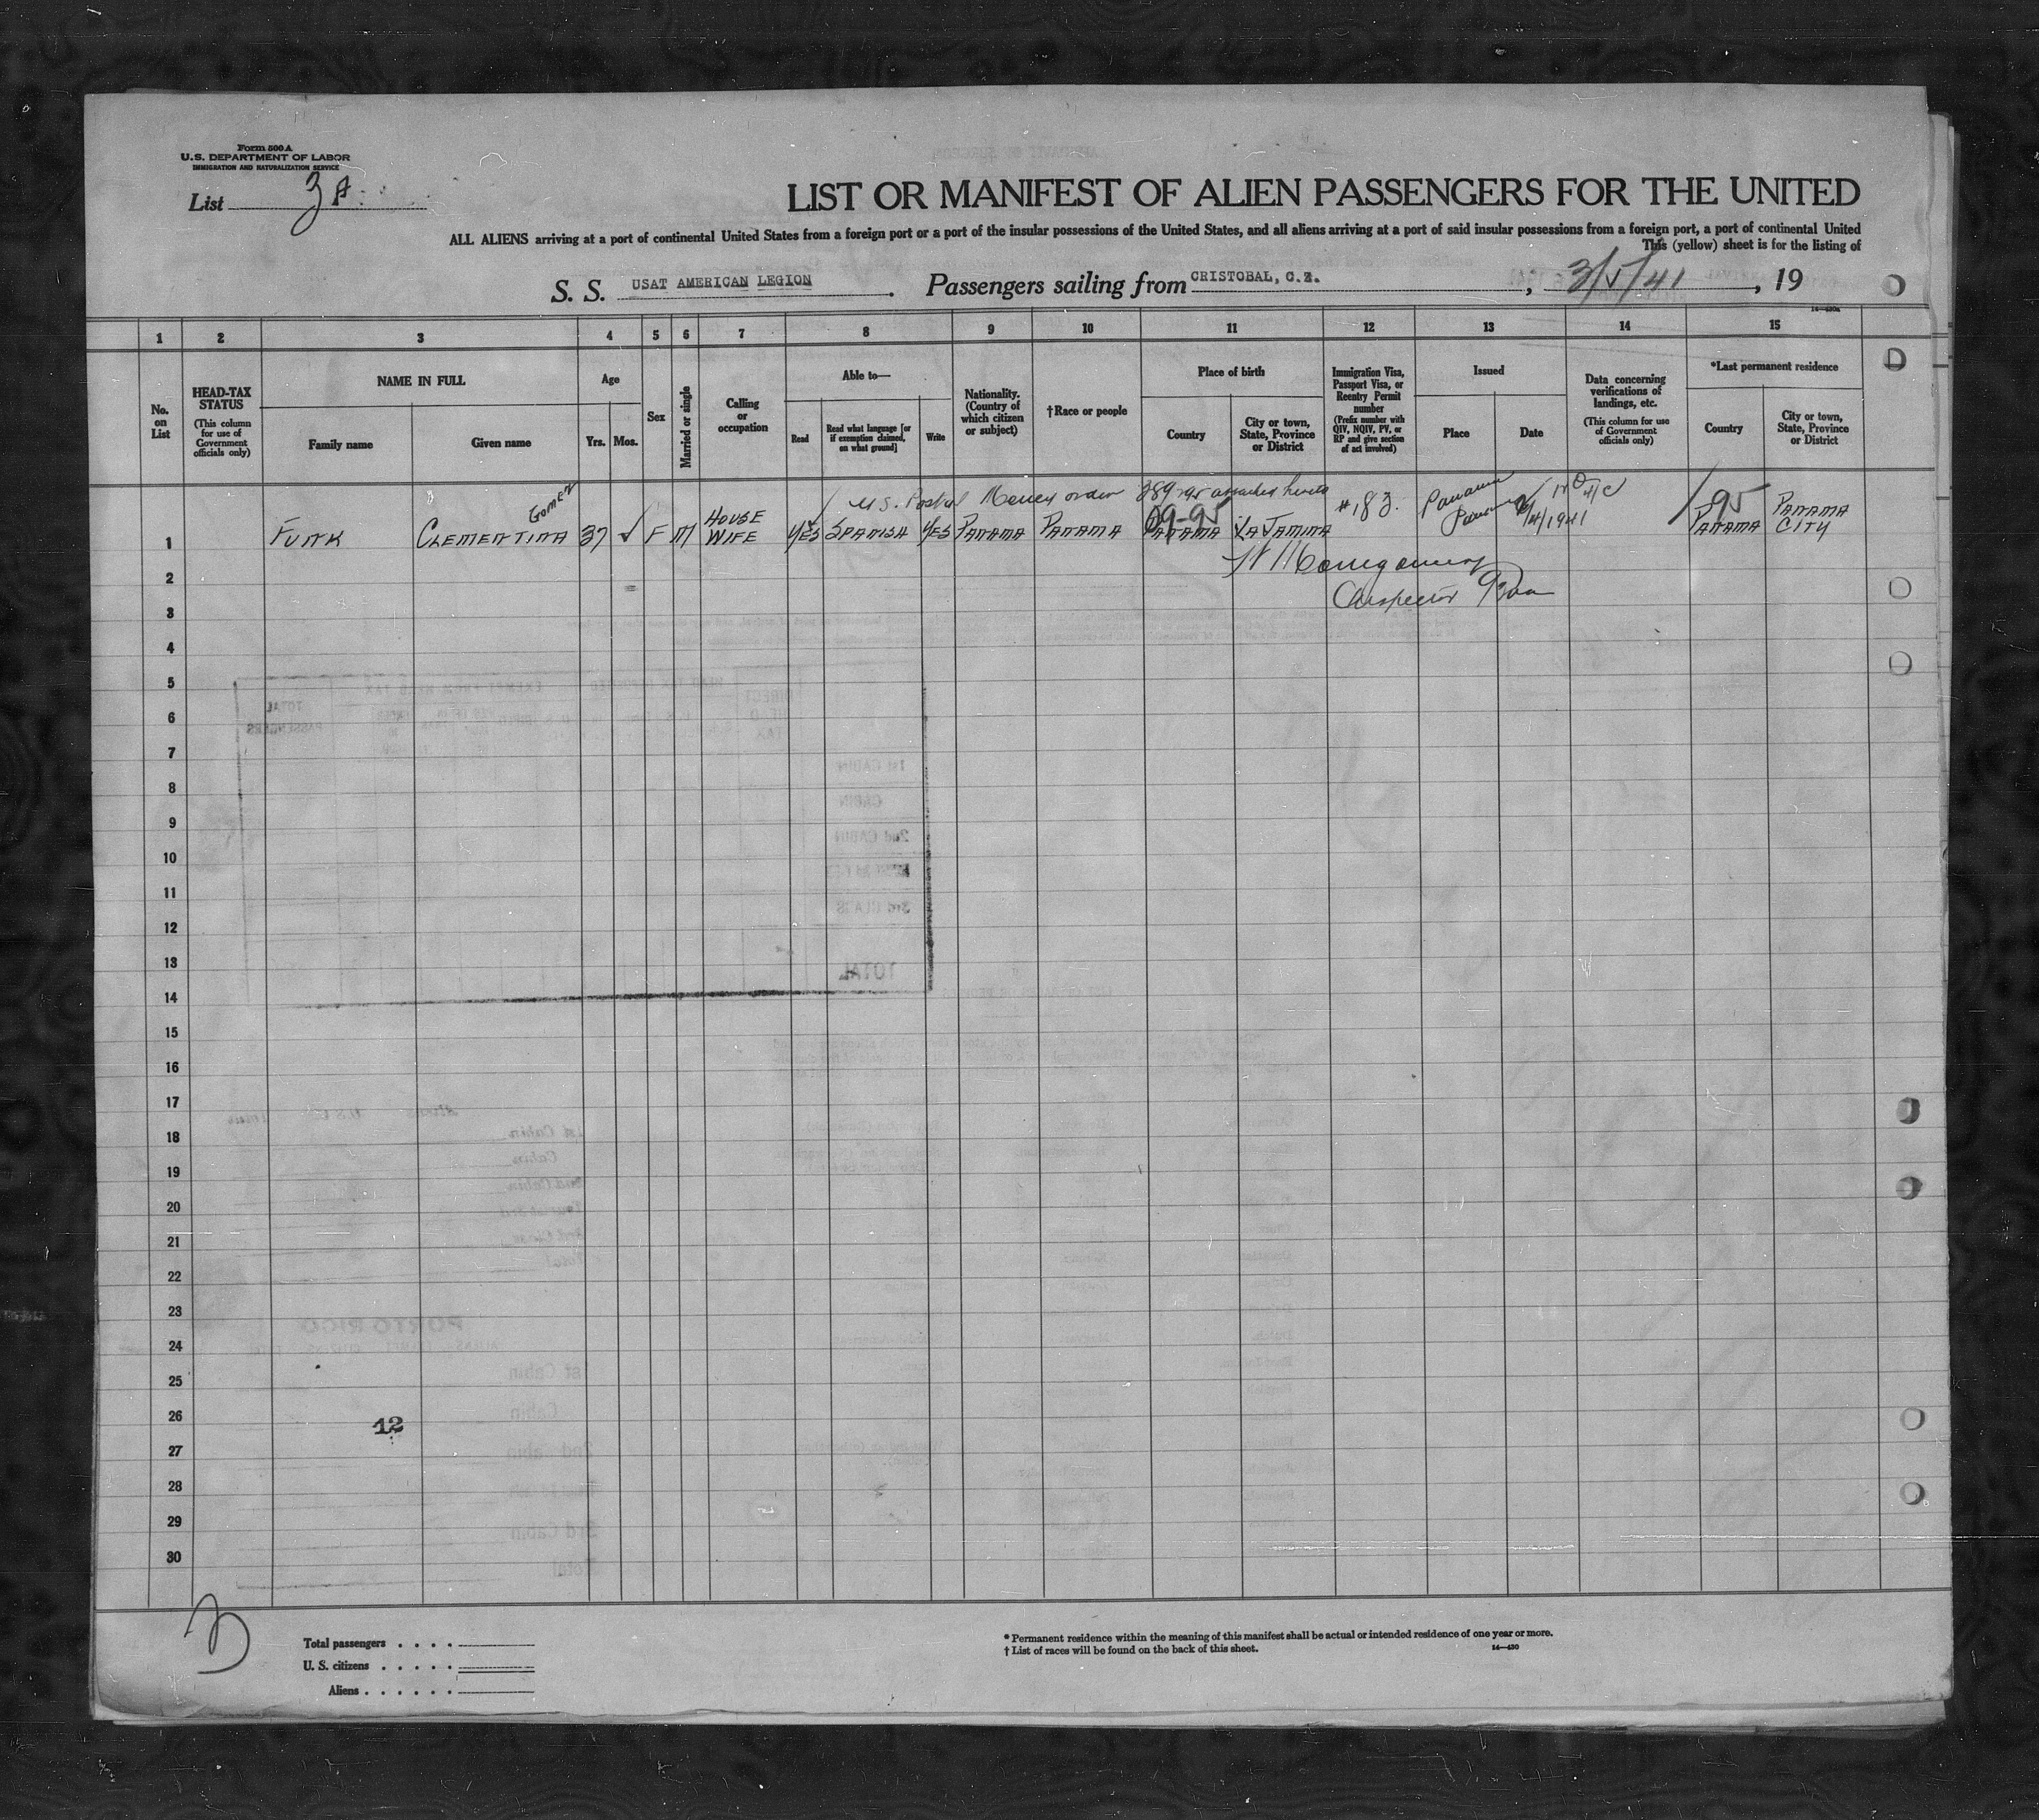 Form 500 A
U.S. DEPARTMENT OF LABOR
IMMIGRATION AND NATURALIZATION SERVICE
List 3A
LIST OR MANIFEST OF ALIEN PASSENGERS FOR THE UNITED
ALL ALIENS arriving at a port of continental United States from a foreign port or a port of the insular possessions of the United States, and all aliens arriving at a port of said insular possessions from a foreign port, a port of continental United
This (yellow) sheet is for the listing of
S. S. USAT AMERICAN LEGION. Passengers sailing from CRISTOBAL, C.Z., 3/5/41, 19
14—430a
1 2 3 4 5 6 7 8 9 10 11 12 13 14 15
No. on List
HEAD-TAX STATUS
(This column for use of Government officials only)
NAME IN FULL
Family name
Given name
Age
Yrs.
Mos.
Sex
Married or single
Calling or occupation
Able to—
Read
Read what language [or if exemption claimed, on what ground]
Write
Nationality. (Country of which citizen or subject)
†Race or people
Place of birth
Country
City or town, State, Province or District
Immigration Visa, Passport Visa, or Reentry Permit number
(Prefix number with QIV, NQIV, PV, or RP and give section of act involved)
Issued
Place
Date
Data concerning verifications of landings, etc.
(This column for use of Government officials only)
*Last permanent residence
Country
City or town, State, Province or District
U.S. Postal Money order attached hereto
1 FUNK CLEMENTINA Gomez 37 F M HOUSE WIFE YES SPANISH YES PANAMA PANAMA PANAMA LA JAMINA #183. Panama 1941 PANAMA PANAMA CITY
09-95
95
2 Montgomery
3 Inspector
4
5
6
7
8
9
10
11
12
13
14
15
16
17
18
19
20
21
22
23
24
25
26
12
27
28
29
30
Total passengers . . . .
U. S. citizens . . . . .
Aliens . . . . . .
* Permanent residence within the meaning of this manifest shall be actual or intended residence of one year or more.
† List of races will be found on the back of this sheet.
14—430